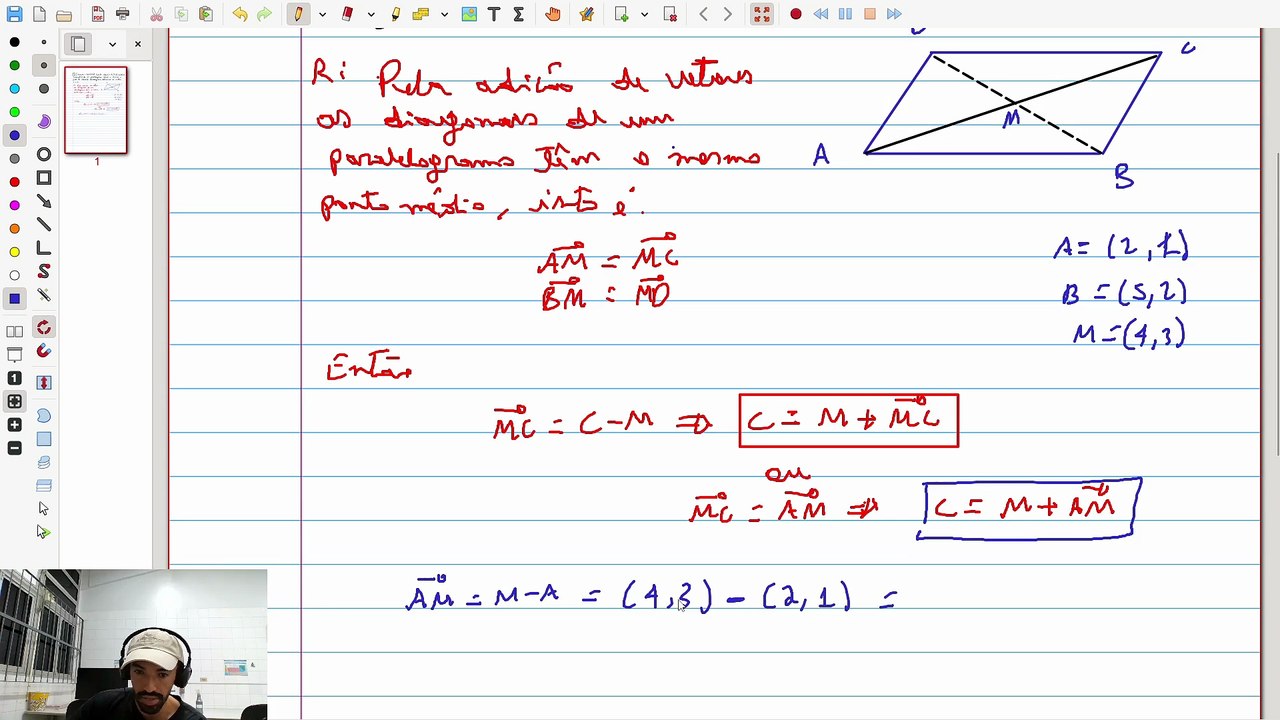 R: Pela adição de vetores
C
as diagonais de um
M
paralelogramo têm o mesmo
A
B
ponto médio, isto é:
AM = MC
A = (2,1)
BM = MD
B = (5,2)
M = (4,3)
Então
MC = C - M ⇒ C = M + MC
ou
MC = AM ⇒ C = M + AM
AM = M - A = (4,3) - (2,1) =
1
1